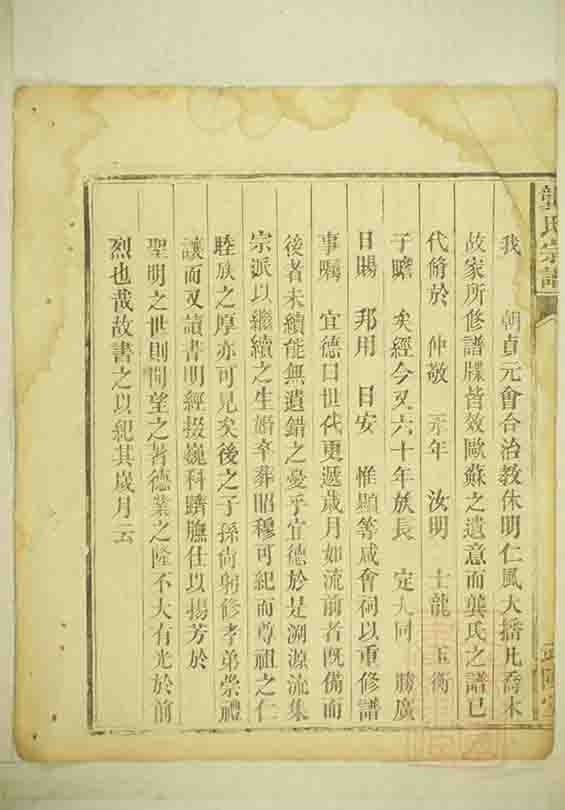 龔氏宗譜
我 朝貞元會合治教休明仁風大播凡喬木
故家所修譜牒皆效歐蘇之遺意而龔氏之譜已
代脩於 仲敬 元年 汝明 士龍 玉衡
子瞻 矣經今又六十年族長 定九同 勝廣
日賜 邦用 日安 惟顯等咸會祠以重修譜
事囑 宜德曰世代更遞歲月如流前者既備而
後者未續能無遺錯之憂乎宜德於是溯源流集
宗派以繼續之生婚卒葬昭穆可紀而尊祖之仁
睦族之厚亦可見矣後之子孫尚射修孝弟崇禮
讓而又讀書明經掇巍科躋膴仕以揚芳於
聖明之世則聞望之著德業之隆不大有光於前
烈也哉故書之以紀其歲月云